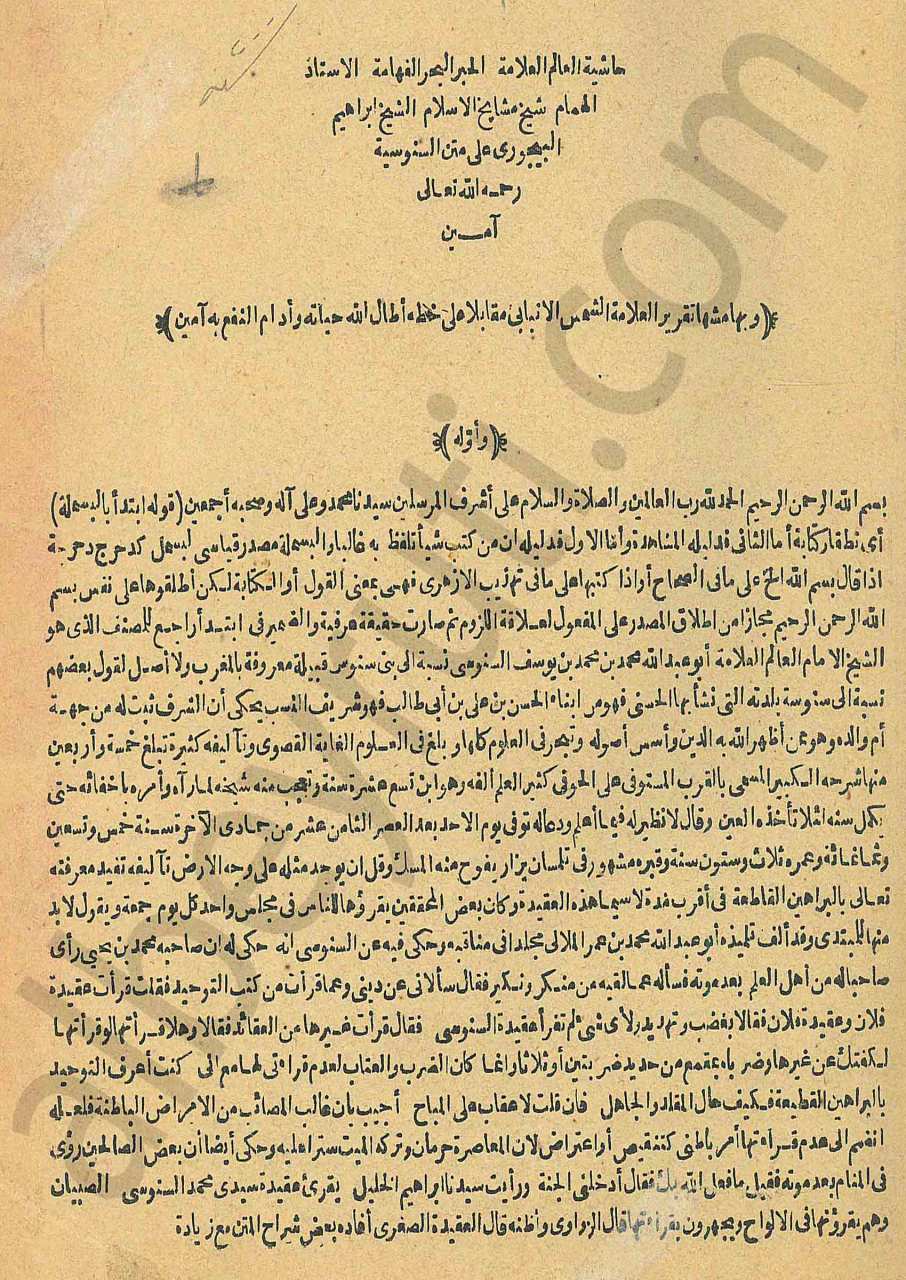 حاشية العالم العلامة الحبر البحر الفهامة الاستاذ
الهمام شيخ مشايخ الاسلام الشيخ ابراهيم
البيجورى على متن السنوسية
رحمه الله تعالى
آمــين
﴿وبهامشها تقرير العلامة الشمس الانبابى مقابلا على خطه أطال الله حياته وأدام النفع به آمين﴾
﴿وأوله﴾
بسم الله الرحمن الرحيم الحمد لله رب العالمين والصلاة والسلام على أشرف المرسلين سيدنا محمد وعلى آله وصحبه أجمعين (قوله ابتدأ بالبسملة)
أى نطقا وكتابة أما الثانى فدليله المشاهدة وأما الاول فدليله ان من كتب شيأ تلفظ به غالبا والبسملة مصدر قياسى لبسمل كدحرج دحرجة
اذا قال بسم الله الخ على مافى الصحاح أو اذا كتبها على مافى تهذيب الازهرى فهى بمعنى القول أو الكتابة لكن أطلقوها على نفس بسم
الله الرحمن الرحيم مجازا من اطلاق المصدر على المفعول لعلاقة اللزوم ثم صارت حقيقة عرفية والضمير فى ابتدأ راجع للمصنف الذى هو
الشيخ الامام العالم العلامة أبو عبد الله محمد بن محمد بن يوسف السنوسى نسبة الى بنى سنوس قبيلة معروفة بالمغرب ولا أصل لقول بعضهم
نسبة الى سنوسة بلدته التى نشأ بها الحسنى فهو من ابناء الحسن بن على بن أبى طالب فهو شريف النسب يحكى أن الشرف ثبت له من جهة
أم والده وهو ممن أظهر الله به الدين وأسس أصوله وتبحر فى العلوم كلها وبلغ فى العلوم الغاية القصوى وتآليفه كثيرة تبلغ خمسة وأربعين
منها شرحه الكبير المسمى بالقرب المستوفى على الحوفى كثير العلم ألفه وهو ابن تسع عشرة سنة وتعجب منه شيخه لما رآه وأمره باخفائه حتى
يكمل سنه اثلا تأخذه العين وقال لانظير له فيما أعلم ودعاله توفى يوم الاحد بعد العصر الثامن عشر من جمادى الآخرة سنة خمس وتسعين
وثمانمائة وعمره ثلاث وستون سنة وقبره مشهور فى تلمسان يزار يفوح منه المسك وقل ان يوجد مثله على وجه الارض تآليفه تفيد معرفته
تعالى بالبراهين القاطعة فى أقرب مدة لاسيما هذه العقيدة وكان بعض المحققين يقرؤها للناس فى مجلس واحد كل يوم جمعة ويقول لابد
منها للمبتدى وقد ألف تلميذه أبو عبد الله محمد بن عمر الملالى مجلدا فى مناقبه وحكى فيه عن السنوسى انه حكى له ان صاحبه محمد بن يحيى رأى
صاحباله من أهل العلم بعد موته فسأله عما لقيه من منكر ونكير فقال سألانى عن دينى وعما قرأت من كتب التوحيد فقلت قرأت عقيدة
فلان وعقيدة فلان فقالا بغضب وتهديد ولأى شئ لم تقرأ عقيدة السنوسى فقال قرأت غيرها من العقائد فقالا وهلا قرأتها لو قرأتها
لكفتك عن غيرها وضرباه بمقمع من حديد ضربتين أو ثلاثا وانما كان الضرب والعتاب لعدم قراءتى لها مع انى كنت أعرف التوحيد
بالبراهين القطعية فكيف حال المقلد والجاهل فان قلت لا عقاب على المباح أجيب بأن غالب المصائب من الامراض الباطنة فلعله
انضم الى عدم قراءتها أمر باطنى كتنقيص أو اعتراض لان المعاصرة حرمان وتركه الميت سترا عليه وحكى أيضا أن بعض الصالحين رؤى
فى المنام بعد موته فقيل ما فعل الله بك فقال أدخلنى الجنة ورأيت سيدنا ابراهيم الخليل يقرئ عقيدة سيدى محمد السنوسى الصبيان
وهم يقرؤنها فى الالواح ويجهرون بقراءتها قال الزواوى وأظنه قال العقيدة الصغرى أفاده بعض شراح المتن مع زيادة
alhneynuti.com